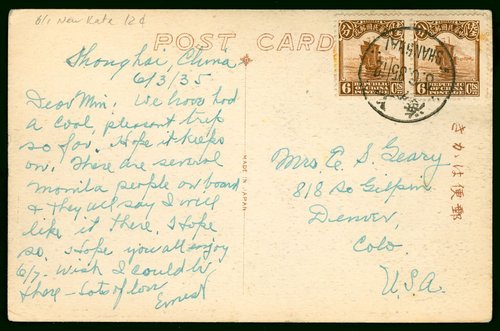 6/1 New Rate 12¢
POST CARD
Shanghai, China
6/3/35
Dear Min. We have had
a cool, pleasant trip
so far. Hope it keeps
on. There are several
manila people on board
& they all say I will
like it there. I hope
so. Hope you all enjoy
6/7. Wish I could be
there - Lots of love
Ernest
MADE IN JAPAN
6 REPUBLIC OF CHINA POSTAGE 6 Cts
SHANGHAI
Mrs. A. S. Geary
818 So Gilpin
Denver,
Colo.
U.S.A.
きかは便郵